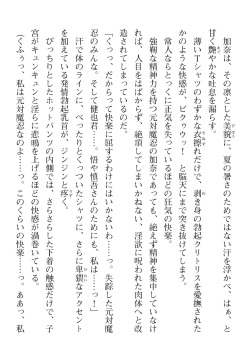 加奈は、その凛とした美貌に、夏の暑さのためではない汗を浮かべ、はぁ、と
甘く艶やかな吐息を漏らした。
薄いTシャツのわずかな衣擦れだけで、剥き身の勃起クリトリスを愛撫された
かのような快感が、ビクゥウッ！　と脳天にまで突き抜けてしまう。
常人ならとっくに正気を失っているほどの狂気の快楽。
強靭な精神力を持つ元対魔忍の加奈であっても、絶えず精神を集中させていなけ
れば、人目をはばからず、絶頂してしまいかねない――淫欲に呪われた肉体へと改
造されてしまっているのだ。
「くっっ、だからって快楽に屈するわけにはいかないわ……っ！　失踪した元対魔
忍のみんな。そして健也君……。悟や慎吾さんのためにも、私は……っ！」
汗で体のラインに、べったりとくっついたシャツに、さらに卑猥なアクセント
を加えている発情勃起乳首が、ジンジンと疼く。
ぴっちりとしたホットパンツの内側では、さらさらした下着の触感だけで、子
宮がキュンキュンと淫らに悲鳴を上げるほどの快感が渦巻いている。
（くふぅっ、私は元対魔忍なのよ……っ。このくらいの快楽……っ。ああっ、私